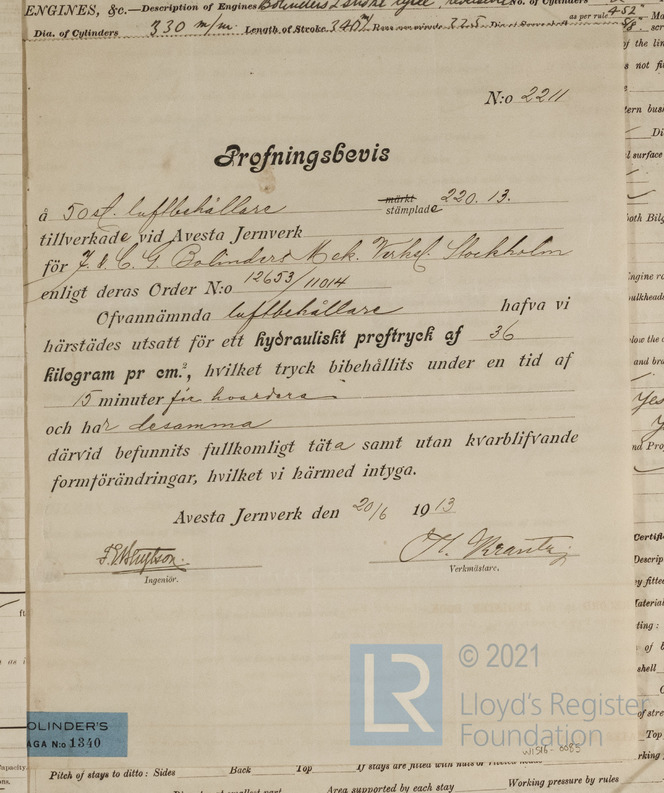 ENGINES, &c.—Description of Engines Bolinders 2 stroke cycle, No. of Cylinders
Dia. of Cylinders 330 m/m. Length of Stroke 345 m/ Revs per minute 225 as per rule 4.52"
N:o 2211
Profningsbevis
å 50 st. luftbehållare märkt
stämplade 220. 13.
tillverkade vid Avesta Jernverk
för J. & C. G. Bolinders Mek. Verkst. Stockholm
enligt deras Order N:o 12653/11014
Ofvannämnda luftbehållare hafva vi
härstädes utsatt för ett hydrauliskt proftryck af 36
kilogram pr cm.², hvilket tryck bibehållits under en tid af
15 minuter för hvardera
och har desamma
därvid befunnits fullkomligt täta samt utan kvarblifvande
formförändringar, hvilket vi härmed intyga.
Avesta Jernverk den 20/6 1913
Ingeniör.
H. Krantz
Verkmästare.
© 2021
LR
Lloyd's Register
Foundation
W1516-0085
OLINDER'S
AGA N:o 1340
Pitch of stays to ditto: Sides Back Top If stays are fitted with nuts or riveted heads
Area supported by each stay Working pressure by rules